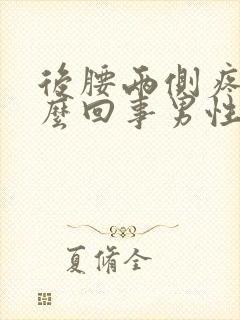 後腰兩側疼
麼回事男性
夏脩全